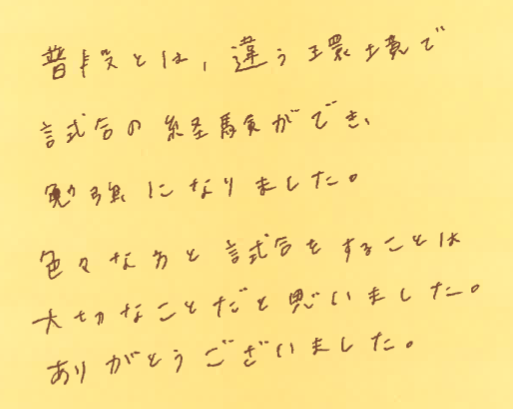 普段とは、違う環境で
試合の経験ができ、
勉強になりました。
色々な方と試合をすることは
大切なことだと思いました。
ありがとうございました。